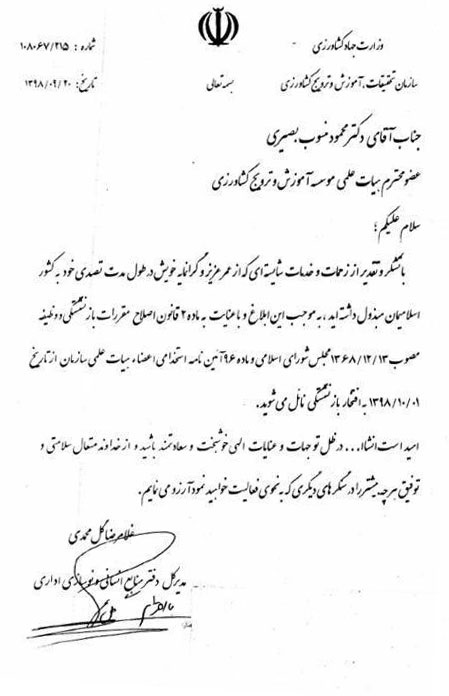 وزارت جهاد کشاورزی
شماره : ۱۰۸۰۶۷/۲۱۵
سازمان تحقیقات، آموزش و ترویج کشاورزی
بسمه تعالی
تاریخ: ۱۳۹۸/۰۹/۲۰
جناب آقای دکتر محمود منسوب بصیری
عضو محترم هیات علمی موسسه آموزش و ترویج کشاورزی
سلام علیکم ؛
با تشکر و تقدیر از زحمات و خدمات شایسته ای که از عمر عزیز و گرانمایه خویش در طول مدت تصدی خود به کشور
اسلامیمان مبذول داشته اید ، به موجب این ابلاغ و با عنایت به ماده ۲ قانون اصلاح مقررات بازنشستگی و وظیفه
مصوب ۱۳۶۸/۱۲/۱۳ مجلس شورای اسلامی و ماده ۹۶ آئین نامه استخدامی اعضاء هیات علمی سازمان از تاریخ
۱۳۹۸/۱۰/۰۱ به افتخار بازنشستگی نائل می شوید.
امید است انشاا... در ظل توجهات و عنایات الهی خوشبخت و سعادتمند باشید و از خداوند متعال سلامتی و
توفیق هر چه بیشتر را در سنگرهای دیگری که به نحوی فعالیت خواهید نمود آرزو می نمایم.
غلامرضا گل محمدی
مدیر کل دفتر منابع انسانی و نوسازی اداری